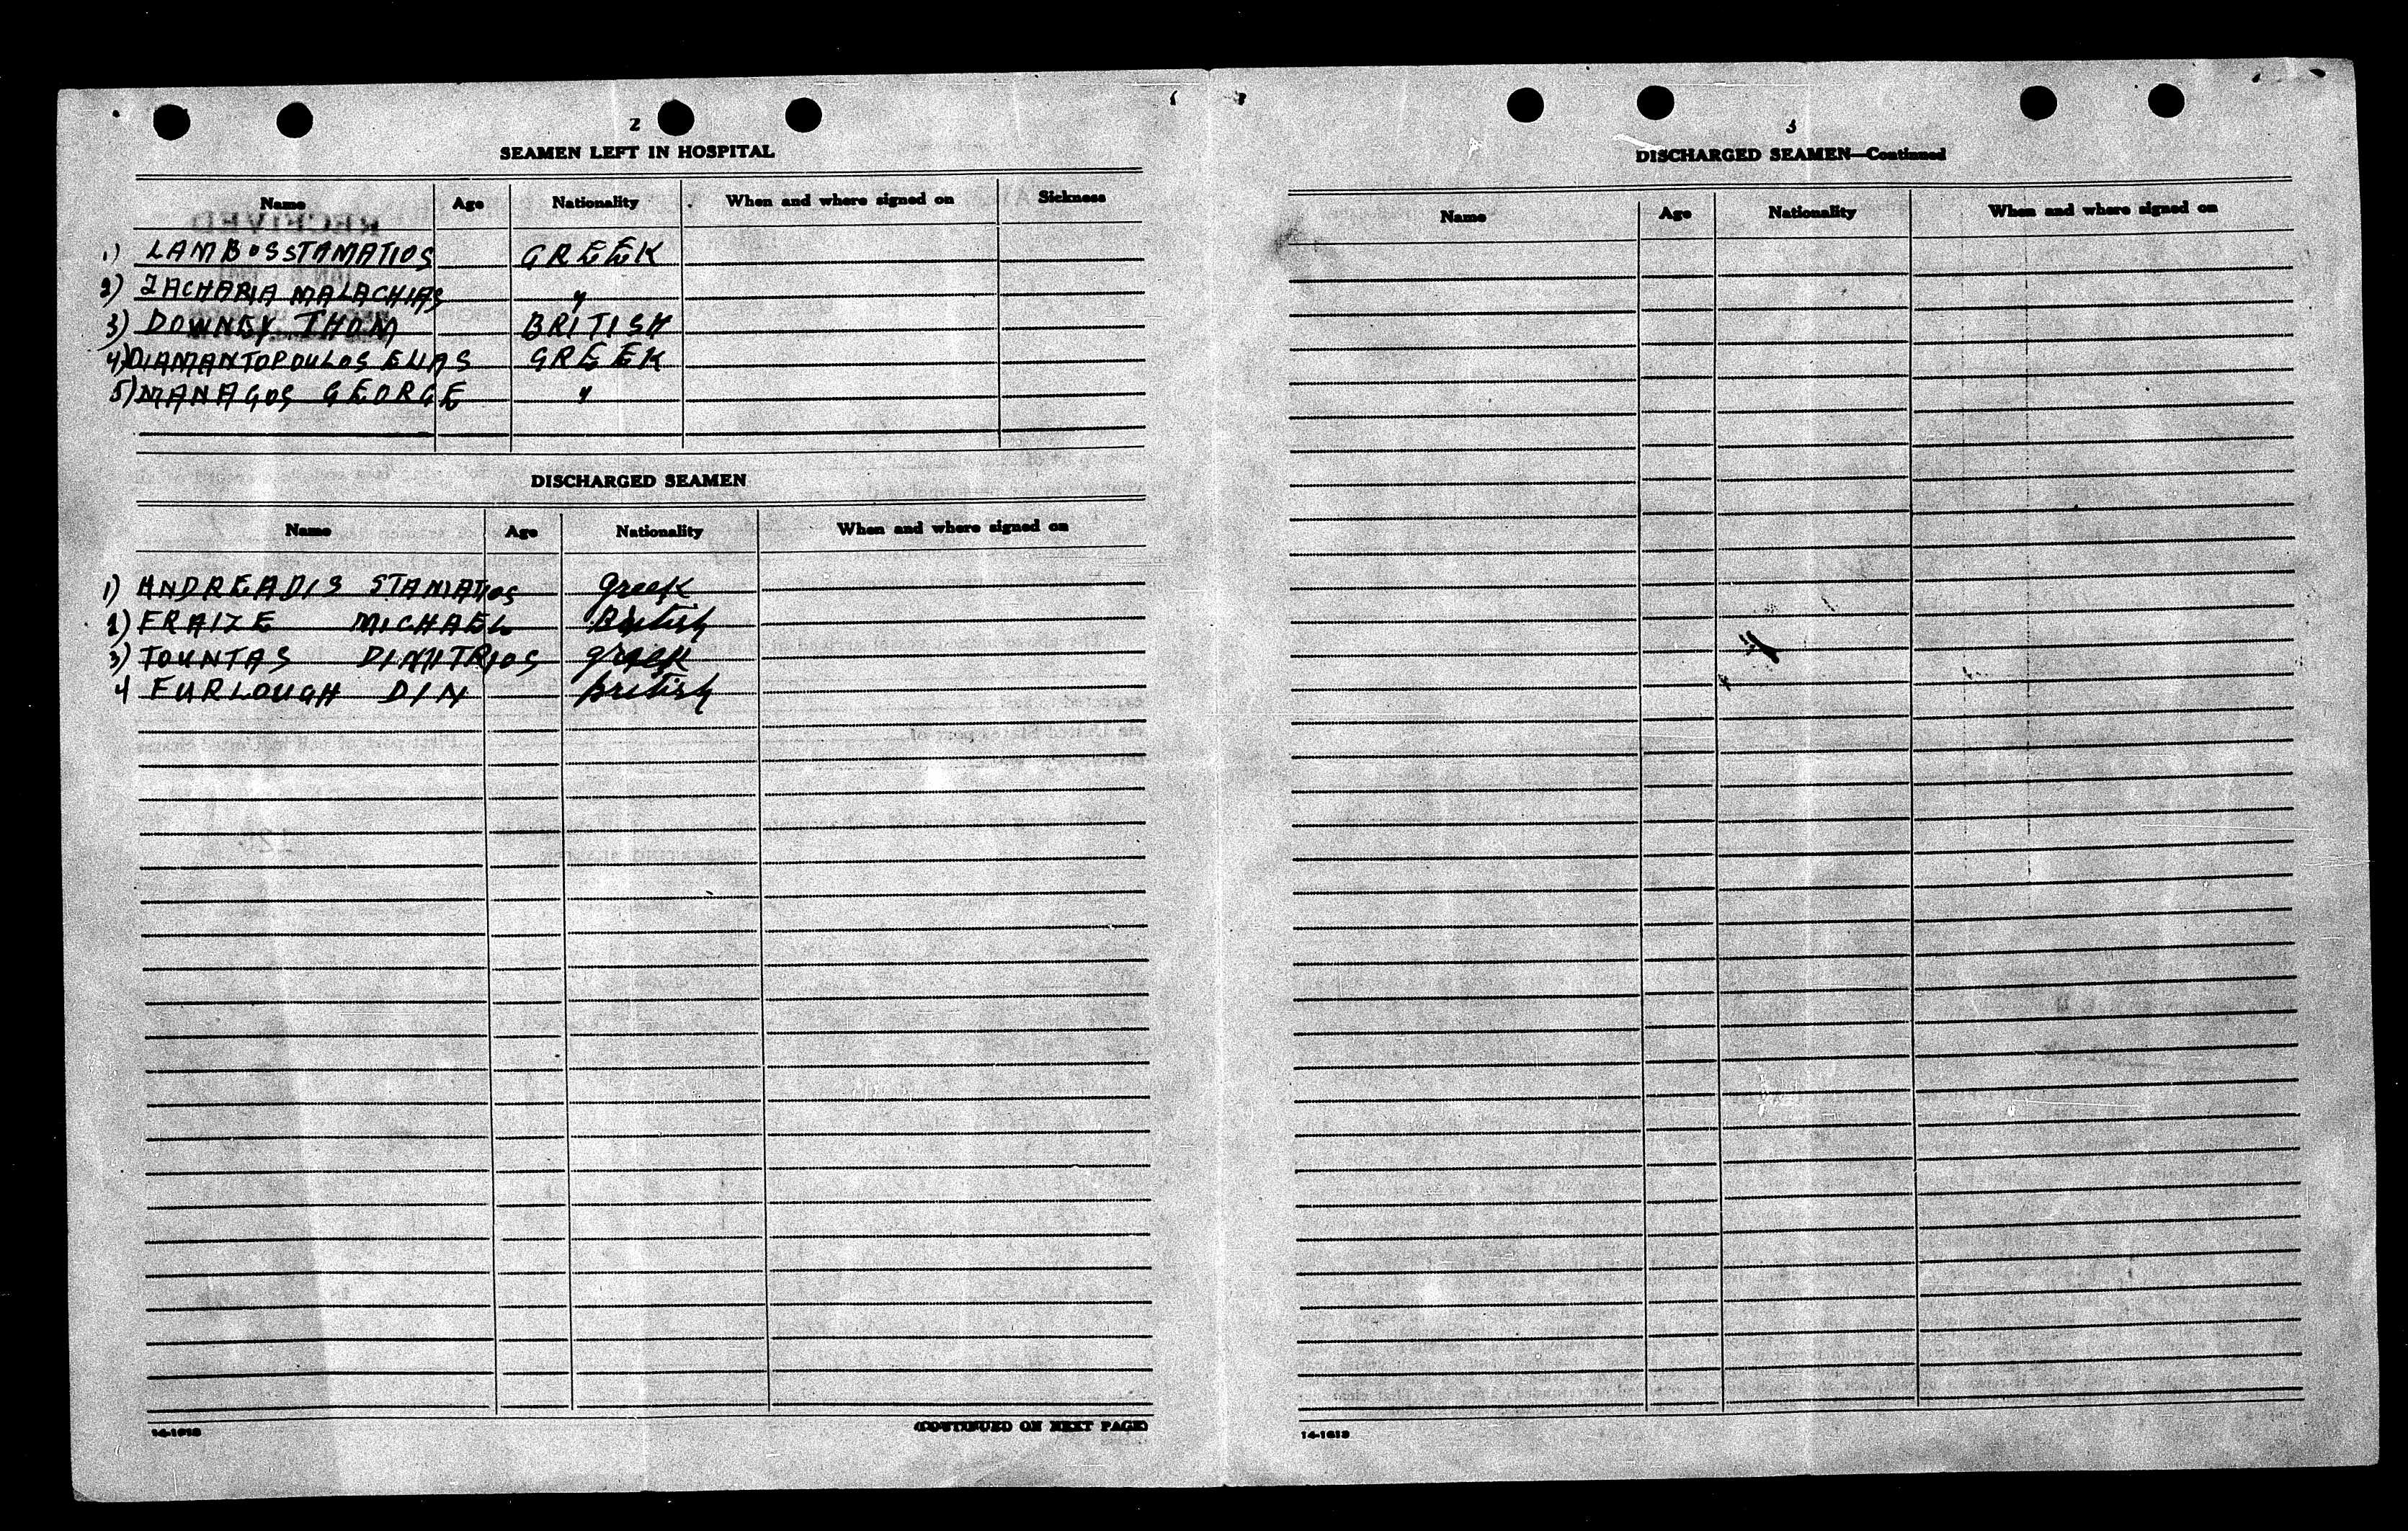 2
SEAMEN LEFT IN HOSPITAL
Name Age Nationality When and where signed on Sickness
1) LAMBOS STAMATIOS GREEK
2) ZACHARIA MALACHIAS "
3) DOWNEY THOM BRITISH
4) DIAMANTOPOULOS ELIAS GREEK
5) MANAGOS GEORGE "
DISCHARGED SEAMEN
Name Age Nationality When and where signed on
1) ANDREADIS STAMATIOS greek
2) FRAIZE MICHAEL British
3) TOUNTAS DIMITRIOS greek
4 FURLOUGH DIN british
14-1613
(CONTINUED ON NEXT PAGE)
3
DISCHARGED SEAMEN—Continued
Name Age Nationality When and where signed on
14-1613